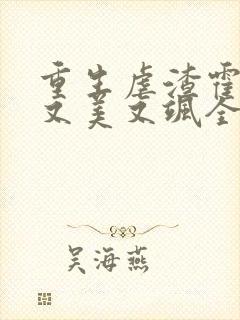 重生虐渣霍
又美又飒全
吴海燕